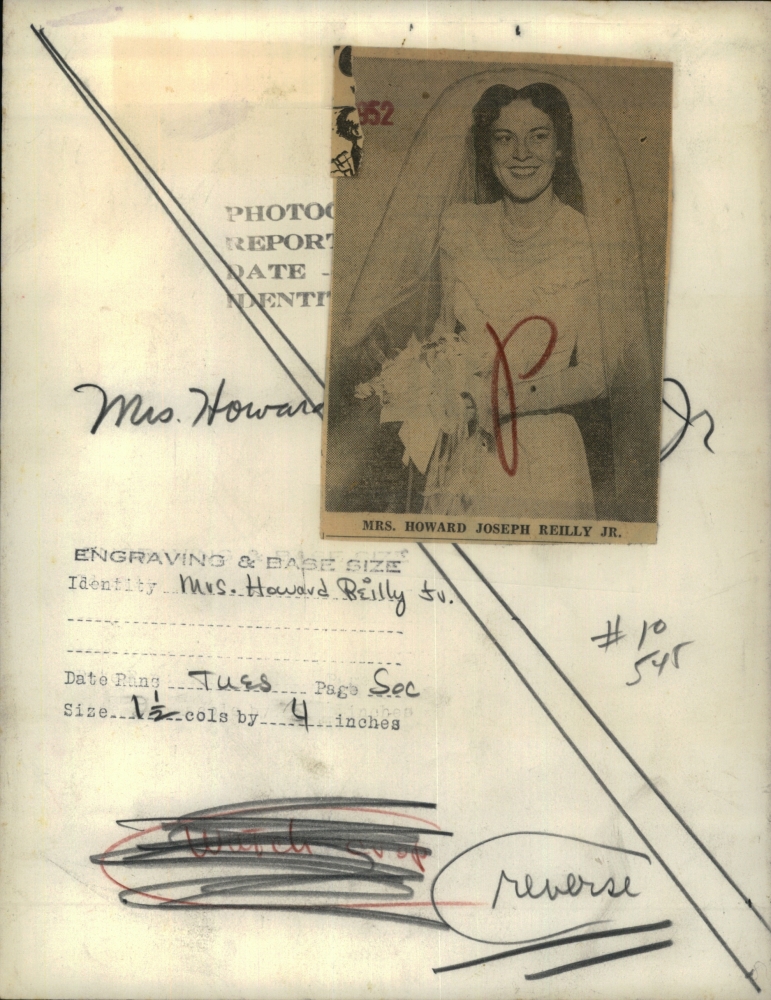 952
PHOTOG
REPORT
DATE -
IDENTI
Mrs. Howard Jr
MRS. HOWARD JOSEPH REILLY JR.
ENGRAVING & BASE SIZE
Identity Mrs. Howard Reilly Jr.
Date Rung Tues Page Soc
Size 1 1/2 cols by 4 inches
# 10
545
Watch crop
reverse